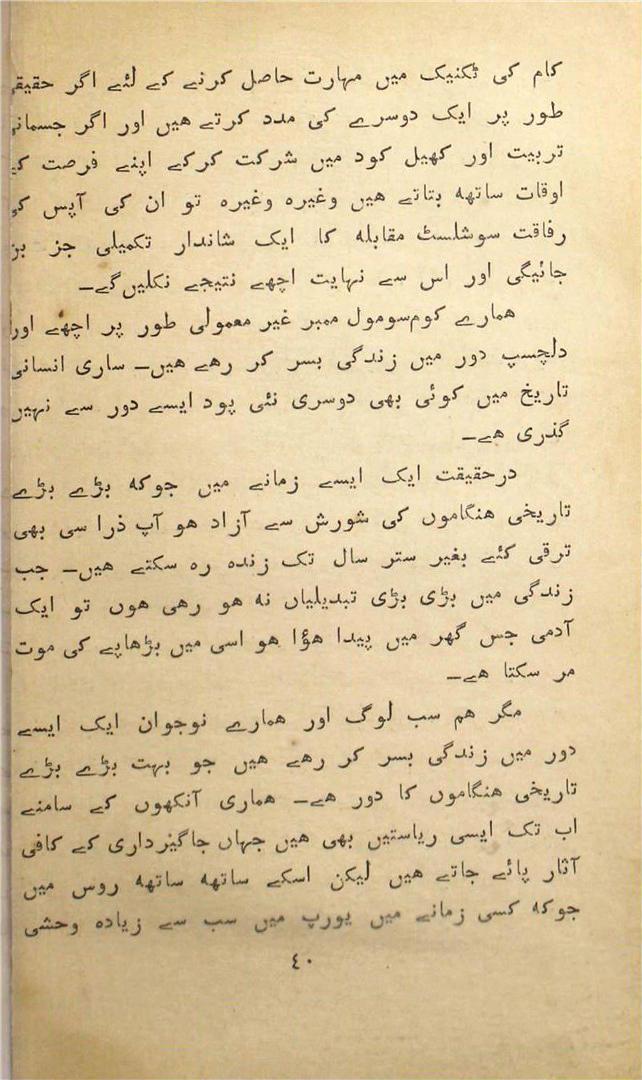 کام کی ٹکنیک میں مہارت حاصل کرنے کے لئے اگر حقیقی
طور پر ایک دوسرے کی مدد کرتے ھیں اور اگر جسمانی
تربیت اور کھیل کود میں شرکت کرکے اپنے فرصت کے
اوقات ساتھہ بتاتے ھیں وغیرہ وغیرہ تو ان کی آپس کی
رفاقت سوشلسٹ مقابلہ کا ایک شاندار تکمیلی جز بن
جائیگی اور اس سے نہایت اچھے نتیجے نکلیں گے۔
ھمارے کوم‌سومول ممبر غیر معمولی طور پر اچھے اور
دلچسپ دور میں زندگی بسر کر رھے ھیں۔ ساری انسانی
تاریخ میں کوئی بھی دوسری نئی پود ایسے دور سے نہیں
گذری ھے۔
درحقیقت ایک ایسے زمانے میں جوکہ بڑے بڑے
تاریخی ھنگاموں کی شورش سے آزاد ھو آپ ذرا سی بھی
ترقی کئے بغیر ستر سال تک زندہ رہ سکتے ھیں۔ جب
زندگی میں بڑی بڑی تبدیلیاں نہ ھو رھی ھوں تو ایک
آدمی جس گھر میں پیدا ھؤا ھو اسی میں بڑھاپے کی موت
مر سکتا ھے۔
مگر ھم سب لوگ اور ھمارے نوجوان ایک ایسے
دور میں زندگی بسر کر رھے ھیں جو بہت بڑے بڑے
تاریخی ھنگاموں کا دور ھے۔ ھماری آنکھوں کے سامنے
اب تک ایسی ریاستیں بھی ھیں جہاں جاگیرداری کے کافی
آثار پائے جاتے ھیں لیکن اسکے ساتھہ ساتھہ روس میں
جوکہ کسی زمانے میں یورپ میں سب سے زیادہ وحشی
٤٠